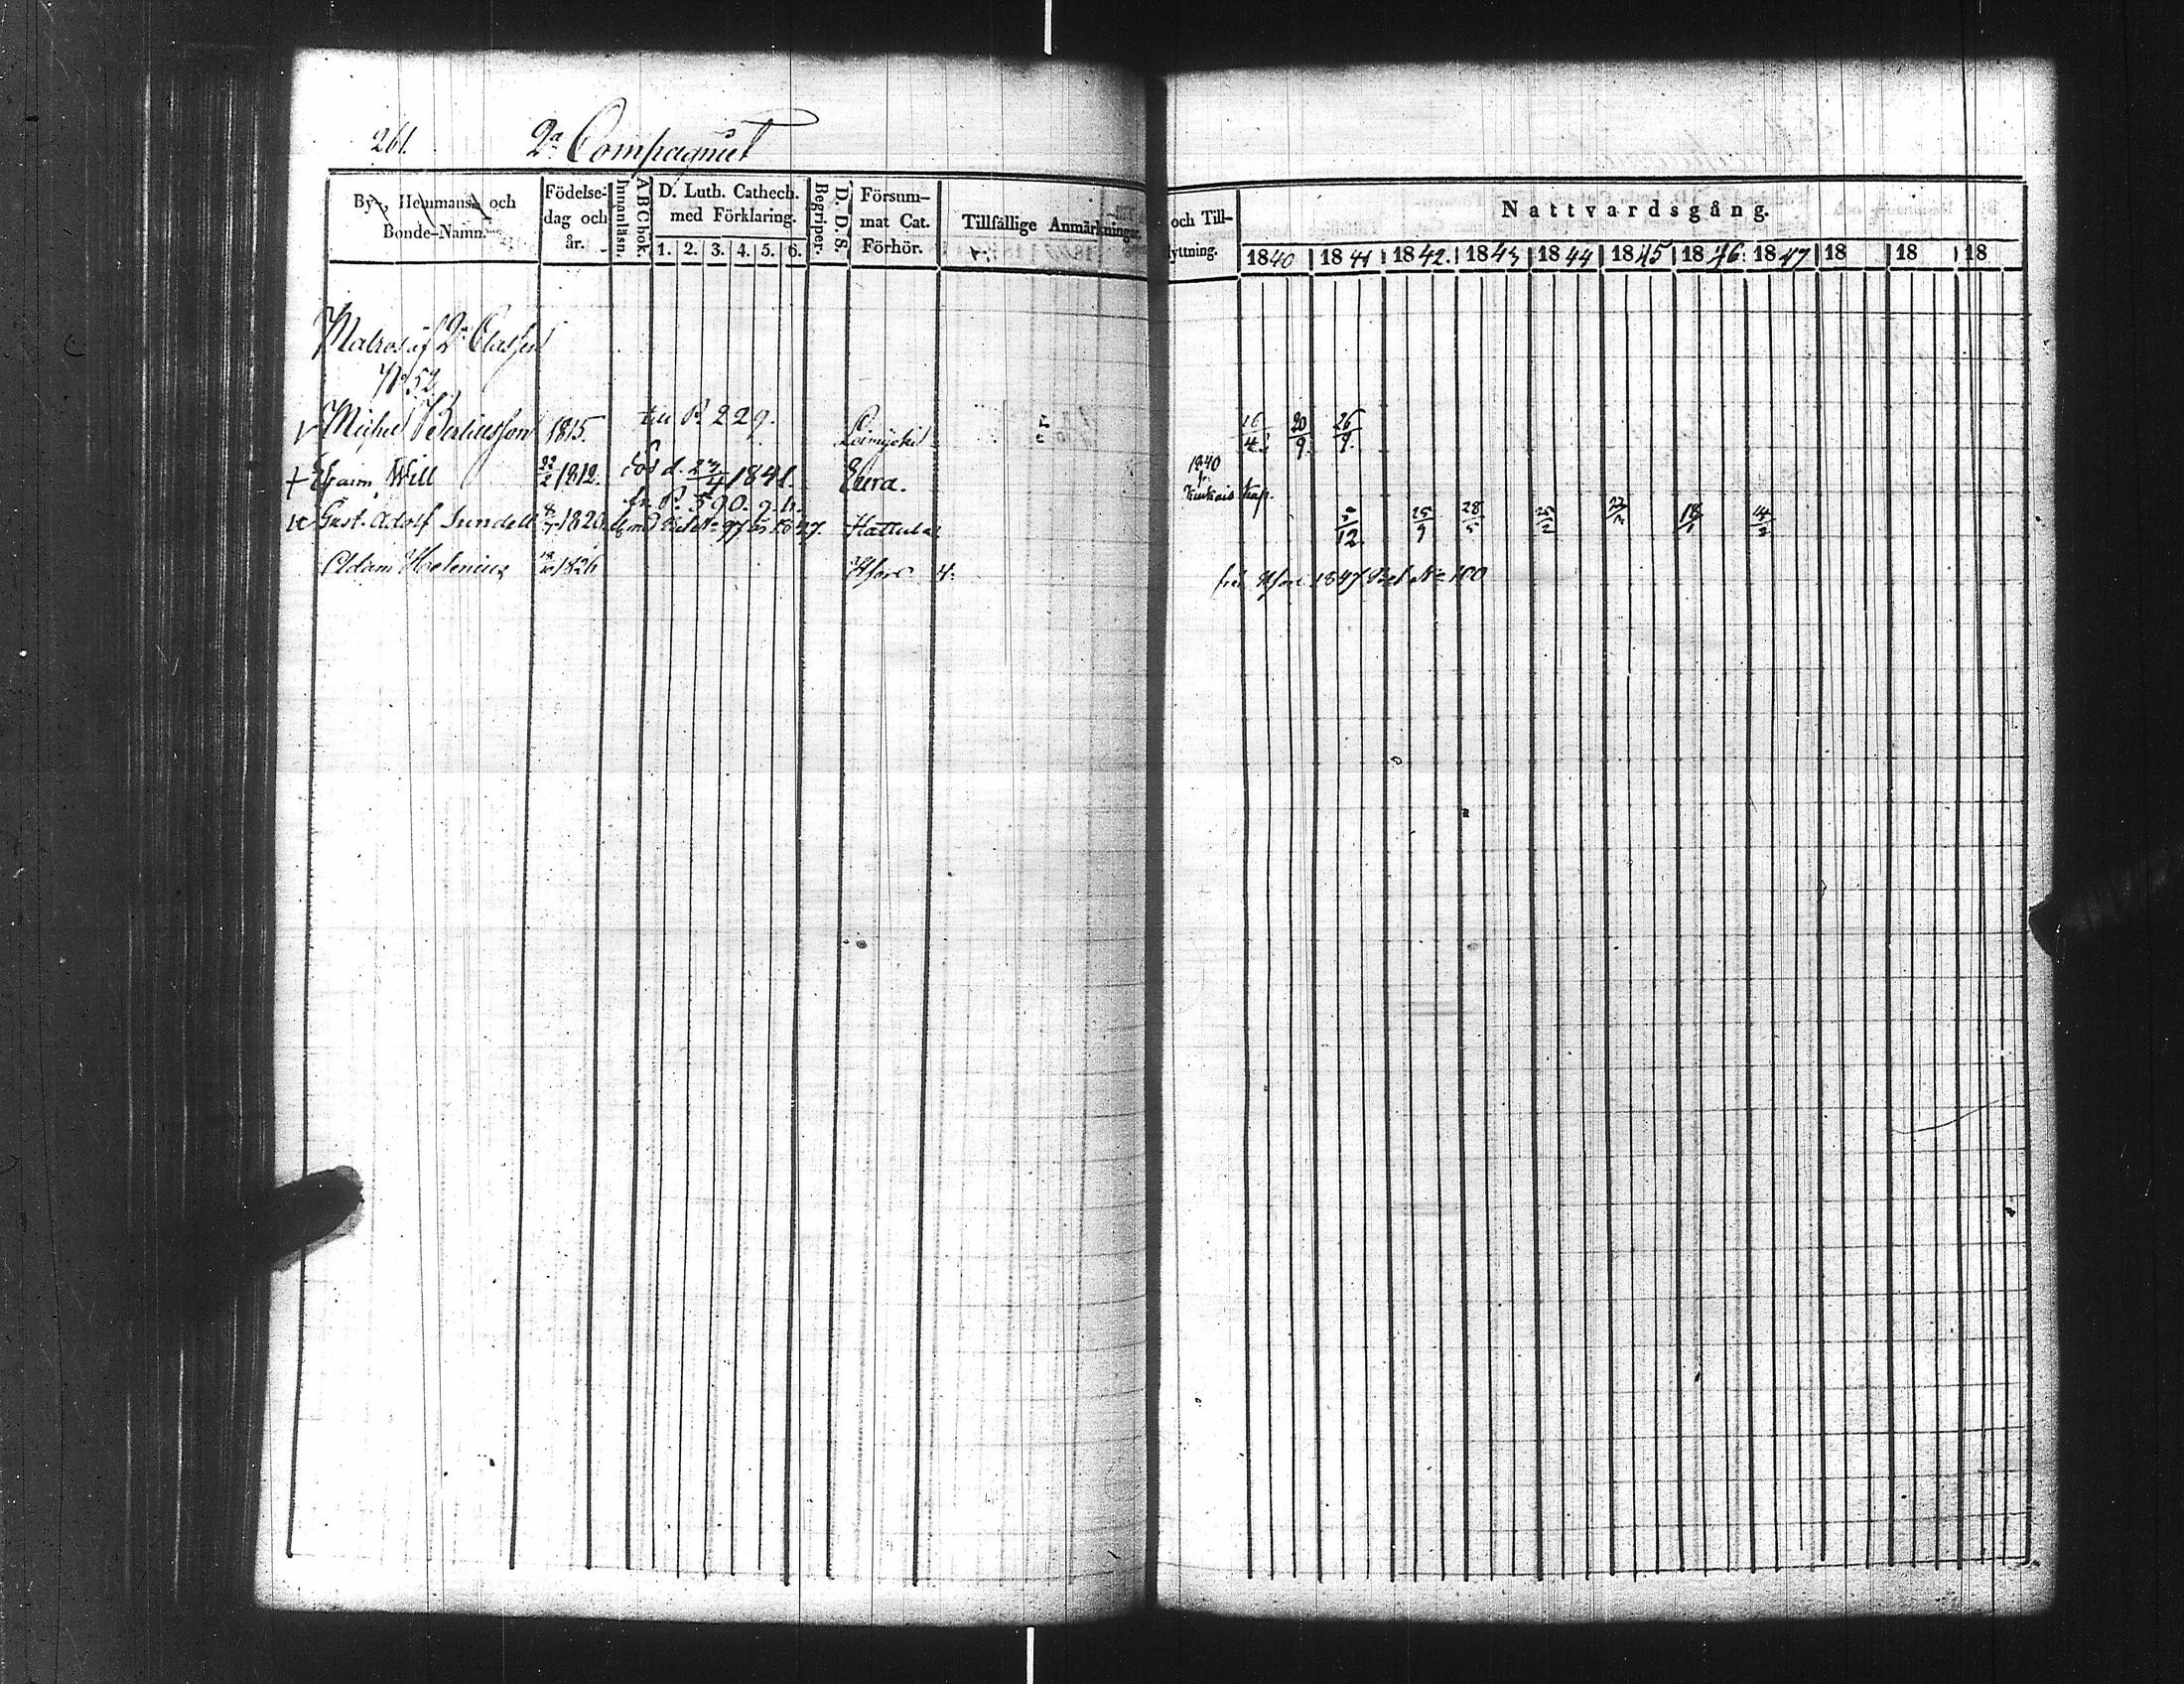 261. 2a Compagniet
By-, Hemmans- och Bonde-Namn.
Födelse-dag och år.
ABCbok. Innanläsn.
D. Luth. Cathech. med Förklaring.
1. 2. 3. 4. 5. 6.
D. D. S. Begriper.
Försum-mat Cat. Förhör.
Tillfällige Anmärkningar.
och Till-
lyttning.
Nattvardsgång.
1840 1841 1842. 1843 1844 1845 1846. 1847 18 18 18
Matros af 2a Classen
No 52
Michel 1815. till P. 229. 20/9. 26/9.
+ Efraim Will 22/2 1812. död d. 1841. Eura. 1840
fr. P. 590. g. h.
Gust. Adolf Sundell 8/7 1820. Hattula 5/12 25/9 28/5 25/2 18/1 14/2
Adam Helenius 1826 Hfors från Hfors 1847 Bet No 100